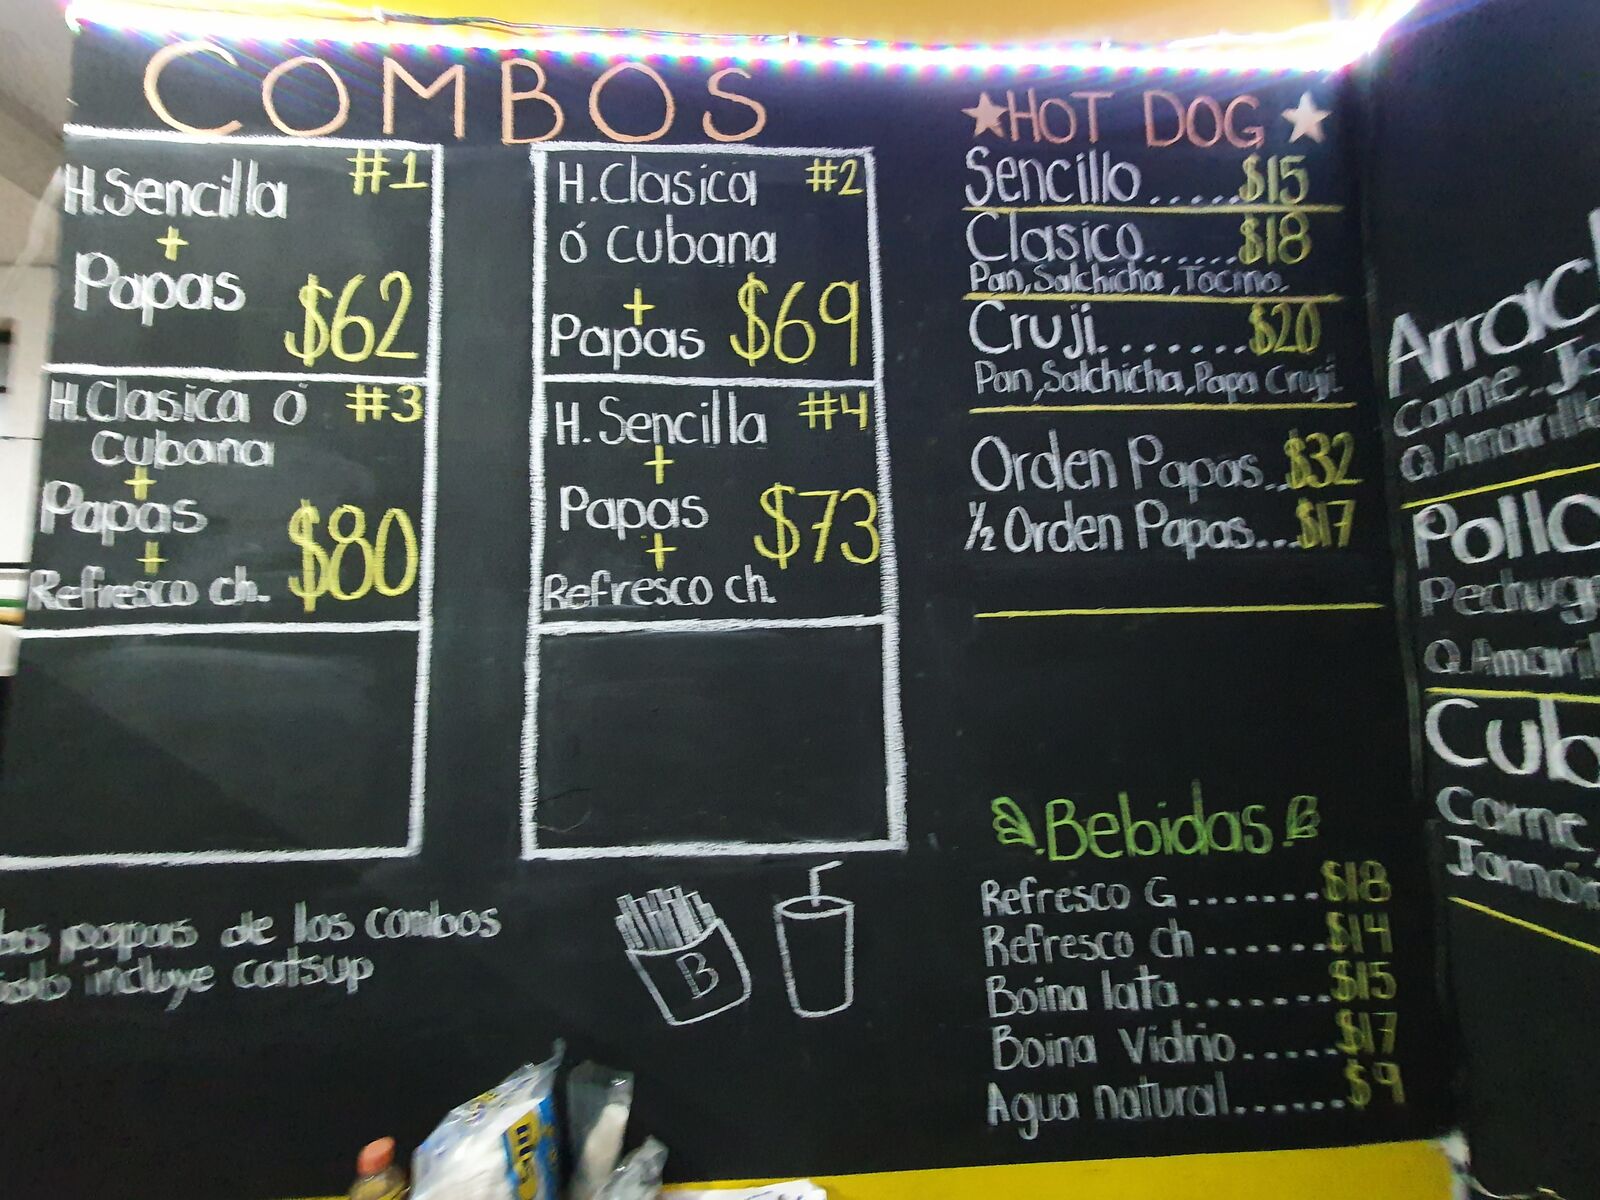 COMBOS
#1
H.Sencilla
+
Papas
$62
H.Clasica #2
ó Cubana
+
Papas $69
H.Clasica ó #3
Cubana
+
Papas
+
Refresco ch. $80
#4
H. Sencilla
+
Papas
+
$73
Refresco ch.
papas de los combos
incluye catsup
B
HOT DOG
Sencillo.....$15
Clasico......$18
Pan, Salchicha, Tocino.
Cruji.......$20
Pan, Salchicha, Papa Cruji.
Orden Papas..$32
½ Orden Papas...$17
Bebidas
Refresco G.......$18
Refresco ch......$14
Boina lata.......$15
Boina Vidrio.....$17
Agua natural......$9
Carne
Q. Amarillo
Pollo
Carne
Jamón